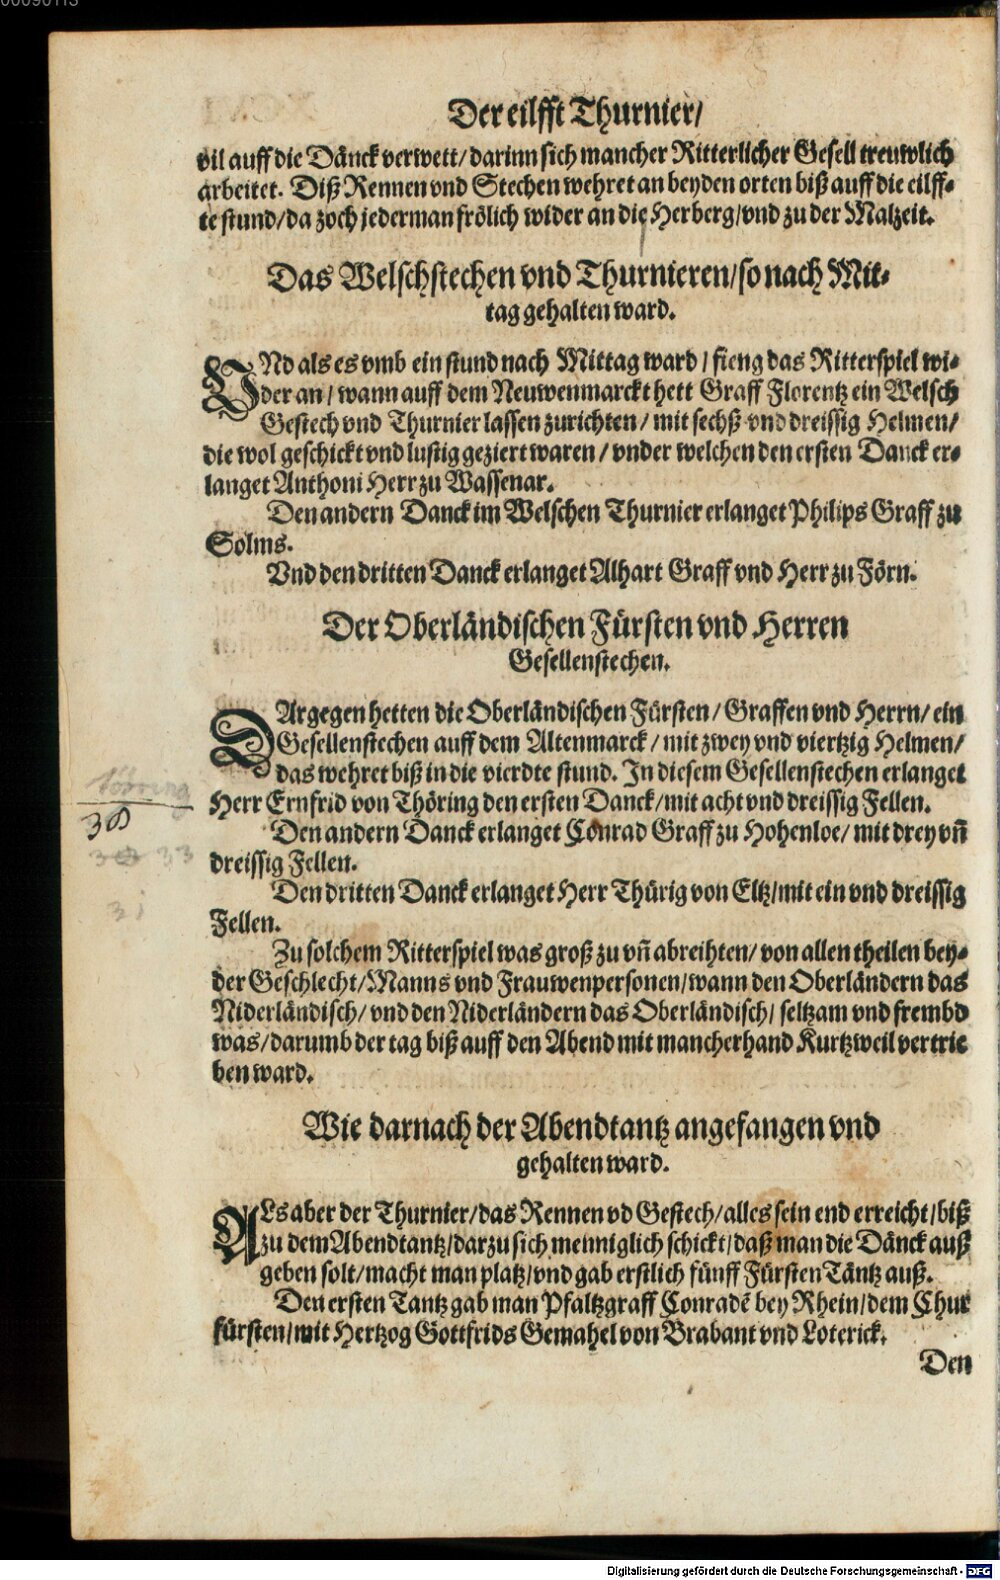 00090113
Der eilfft Thurnier/
vil auff die Dänck verwett/ darinn sich mancher Ritterlicher Gesell treuwlich
arbeitet. Diß Rennen vnd Stechen wehret an beyden orten biß auff die eilff-
te stund/ da zoch jederman frölich wider an die Herberg/ vnd zu der Malzeit.
Das Welschstechen vnd Thurnieren/ so nach Mit-
tag gehalten ward.
VNd als es vmb ein stund nach Mittag ward/ fieng das Ritterspiel wi-
der an/ wann auff dem Neuwenmarckt hett Graff Florentz ein Welsch
Gestech vnd Thurnier lassen zurichten/ mit sechß vnd dreissig Helmen/
die wol geschickt vnd lustig geziert waren/ vnder welchen den ersten Danck er-
langet Anthoni Herr zu Wassenar.
Den andern Danck im Welschen Thurnier erlanget Philips Graff zu
Solms.
Vnd den dritten Danck erlanget Alhart Graff vnd Herr zu Förn.
Der Oberländischen Fürsten vnd Herren
Gesellenstechen.
DArgegen hetten die Oberländischen Fürsten/ Graffen vnd Herrn/ ein
Gesellenstechen auff dem Altenmarck/ mit zwey vnd viertzig Helmen/
das wehret biß in die vierdte stund. In diesem Gesellenstechen erlanget
Herr Ernfrid von Thöring den ersten Danck/ mit acht vnd dreissig Fellen.
Töring
38
Den andern Danck erlanget Conrad Graff zu Hohenloe/ mit drey vñ
dreissig Fellen.
33
Den dritten Danck erlanget Herr Thürig von Eltz/ mit ein vnd dreissig
Fellen.
31
Zu solchem Ritterspiel was groß zu vñ abreihten/ von allen theilen bey-
der Geschlecht/ Manns vnd Frauwenpersonen/ wann den Oberländern das
Niderländisch/ vnd den Niderländern das Oberländisch/ seltzam vnd frembd
was/ darumb der tag biß auff den Abend mit mancherhand Kurtzweil vertrie
ben ward.
Wie darnach der Abendtantz angefangen vnd
gehalten ward.
ALs aber der Thurnier/ das Rennen vd Gestech/ alles sein end erreicht/ biß
zu dem Abendtantz/ darzu sich menniglich schickt/ daß man die Dänck auß
geben solt/ macht man platz/ vnd gab erstlich fünff Fürsten Täntz auß.
Den ersten Tantz gab man Pfaltzgraff Conradē bey Rhein/ dem Chur
fürsten/ mit Hertzog Gottfrids Gemahel von Brabant vnd Loterick.
Den
Digitalisierung gefördert durch die Deutsche Forschungsgemeinschaft - DFG